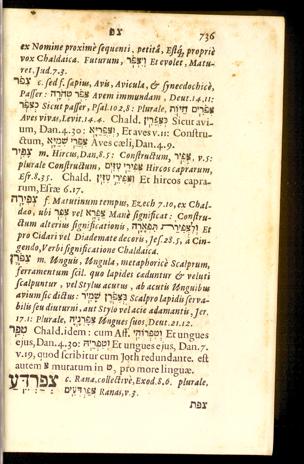 צפ 736
ex Nomine proximè sequenti, petitâ, Estq́; propriè
vox Chaldaica. Futurum, וְיִצְפֹּר Et evolet, Matu-
ret, Jud. 7. 3.
צִפּוֹר c. sed f. sæpius, Avis, Avicula, & synecdochicè,
Passer: צִפּוֹר טְהֹרָה Avem immundam, Deut. 14. 11:
כְּצִפּוֹר Sicut passer, Psal. 102. 8: Plurale, צִפֳּרִים חַיּוֹת
Aves vivas, Levit. 14. 4. Chald. כְּצִפֳּרִין Sicut avi-
um, Dan. 4. 30: וְצִפֲּרַיָּא Et aves v. 11: Constru-
ctum, צִפֲּרֵי שְׁמַיָּא Aves cæli, Dan. 4. 9.
צָפִיר m. Hircus, Dan. 8. 5: Constructum, צְפִיר, v. 5:
plurale Constructum, צְפִירֵי עִזִּים Hircos caprarum,
Esr. 8. 35. Chald. צְפִירֵי עִזִּין Et hircos capra-
rum, Esræ 6. 17.
צְפִירָה f. Matutinum tempus, Ezech 7. 10, ex Chal-
dæo, ubi צפר vel צפרא Manè significat: Constru-
ctum alterius significationis, וְלִצְפִירַת תִּפְאָרָה Et
pro Cidari vel Diademate decoris, Jes. 28. 5, à Cin-
gendo, Verbi significatione Chaldaica.
צִפֹּרֶן m. Unguis, Ungula, metaphoricè Scalprum,
ferramentum scil. quo lapides cæduntur & veluti
scalpuntur, vel Stylus acutus, ab acutis Unguibus
avium sic dictus: בְּצִפֹּרֶן שָׁמִיר Scalpro lapidis serva-
bilis seu diuturni, aut Stylo vel acie adamantis, Jer.
17. 1: Plurale, צִפָּרְנֶיהָ Ungues suos, Deut. 21. 12.
טְפַר Chald. idem: cum Aff. וְטִפְרוֹהִי Et ungues
ejus, Dan. 4. 30: וְטִפְרַיהּ Et ungues ejus, Dan. 7.
v. 19, quod scribitur cum Joth redundante. est
autem צ mutatum in ט, pro more linguæ.
צְפַרְדֵּעַ c. Rana. collectivè, Exod. 8. 6. plurale,
צְפַרְדְּעִים Ranas, v. 3.
צפת